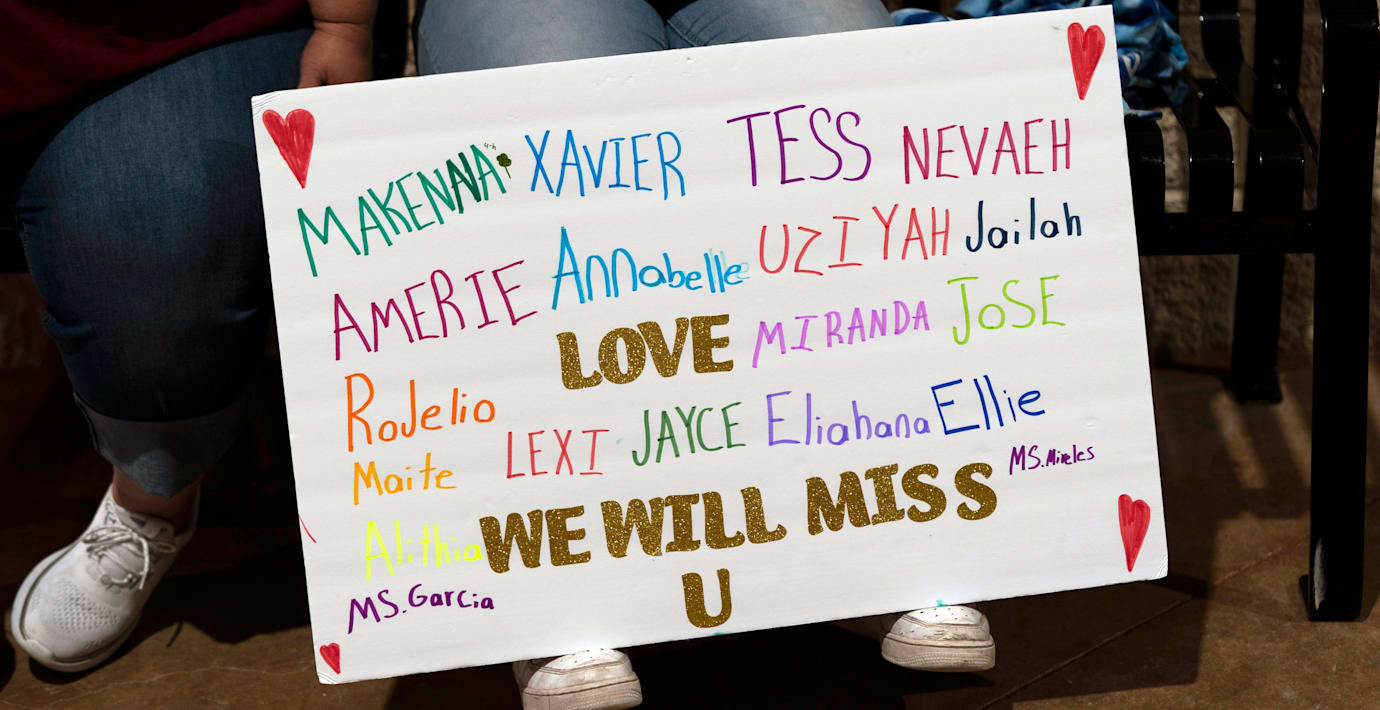 MAKENNA 4-h XAVIER TESS NEVAEH
AMERIE Annabelle UZIYAH Jailah
LOVE MIRANDA JOSE
RoJelio LEXI JAYCE Eliahana Ellie
Maite MS. Mireles
Alithia WE WILL MISS
MS. Garcia U